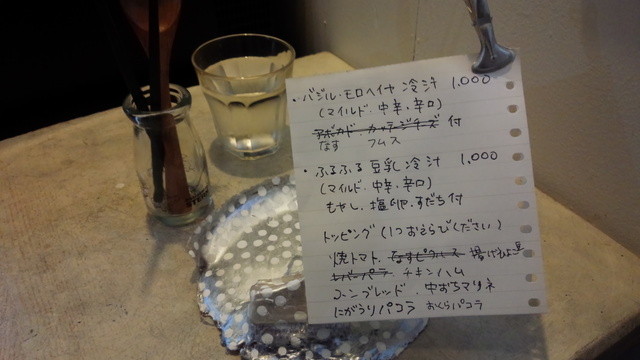 ・バジル・モロヘイヤ 冷汁 1,000
(マイルド・中辛・辛口)
アボカド・カッテージチーズ 付
なす フムス
・ふるふる豆乳冷汁 1,000
(マイルド・中辛・辛口)
もやし、塩卵、すだち付
トッピング(1つおえらびください)
焼トマト、なすピクルス 揚げねぎ
レバーパテ チキンハム
コーンブレッド 中おちマリネ
にがうりパコラ おくらパコラ